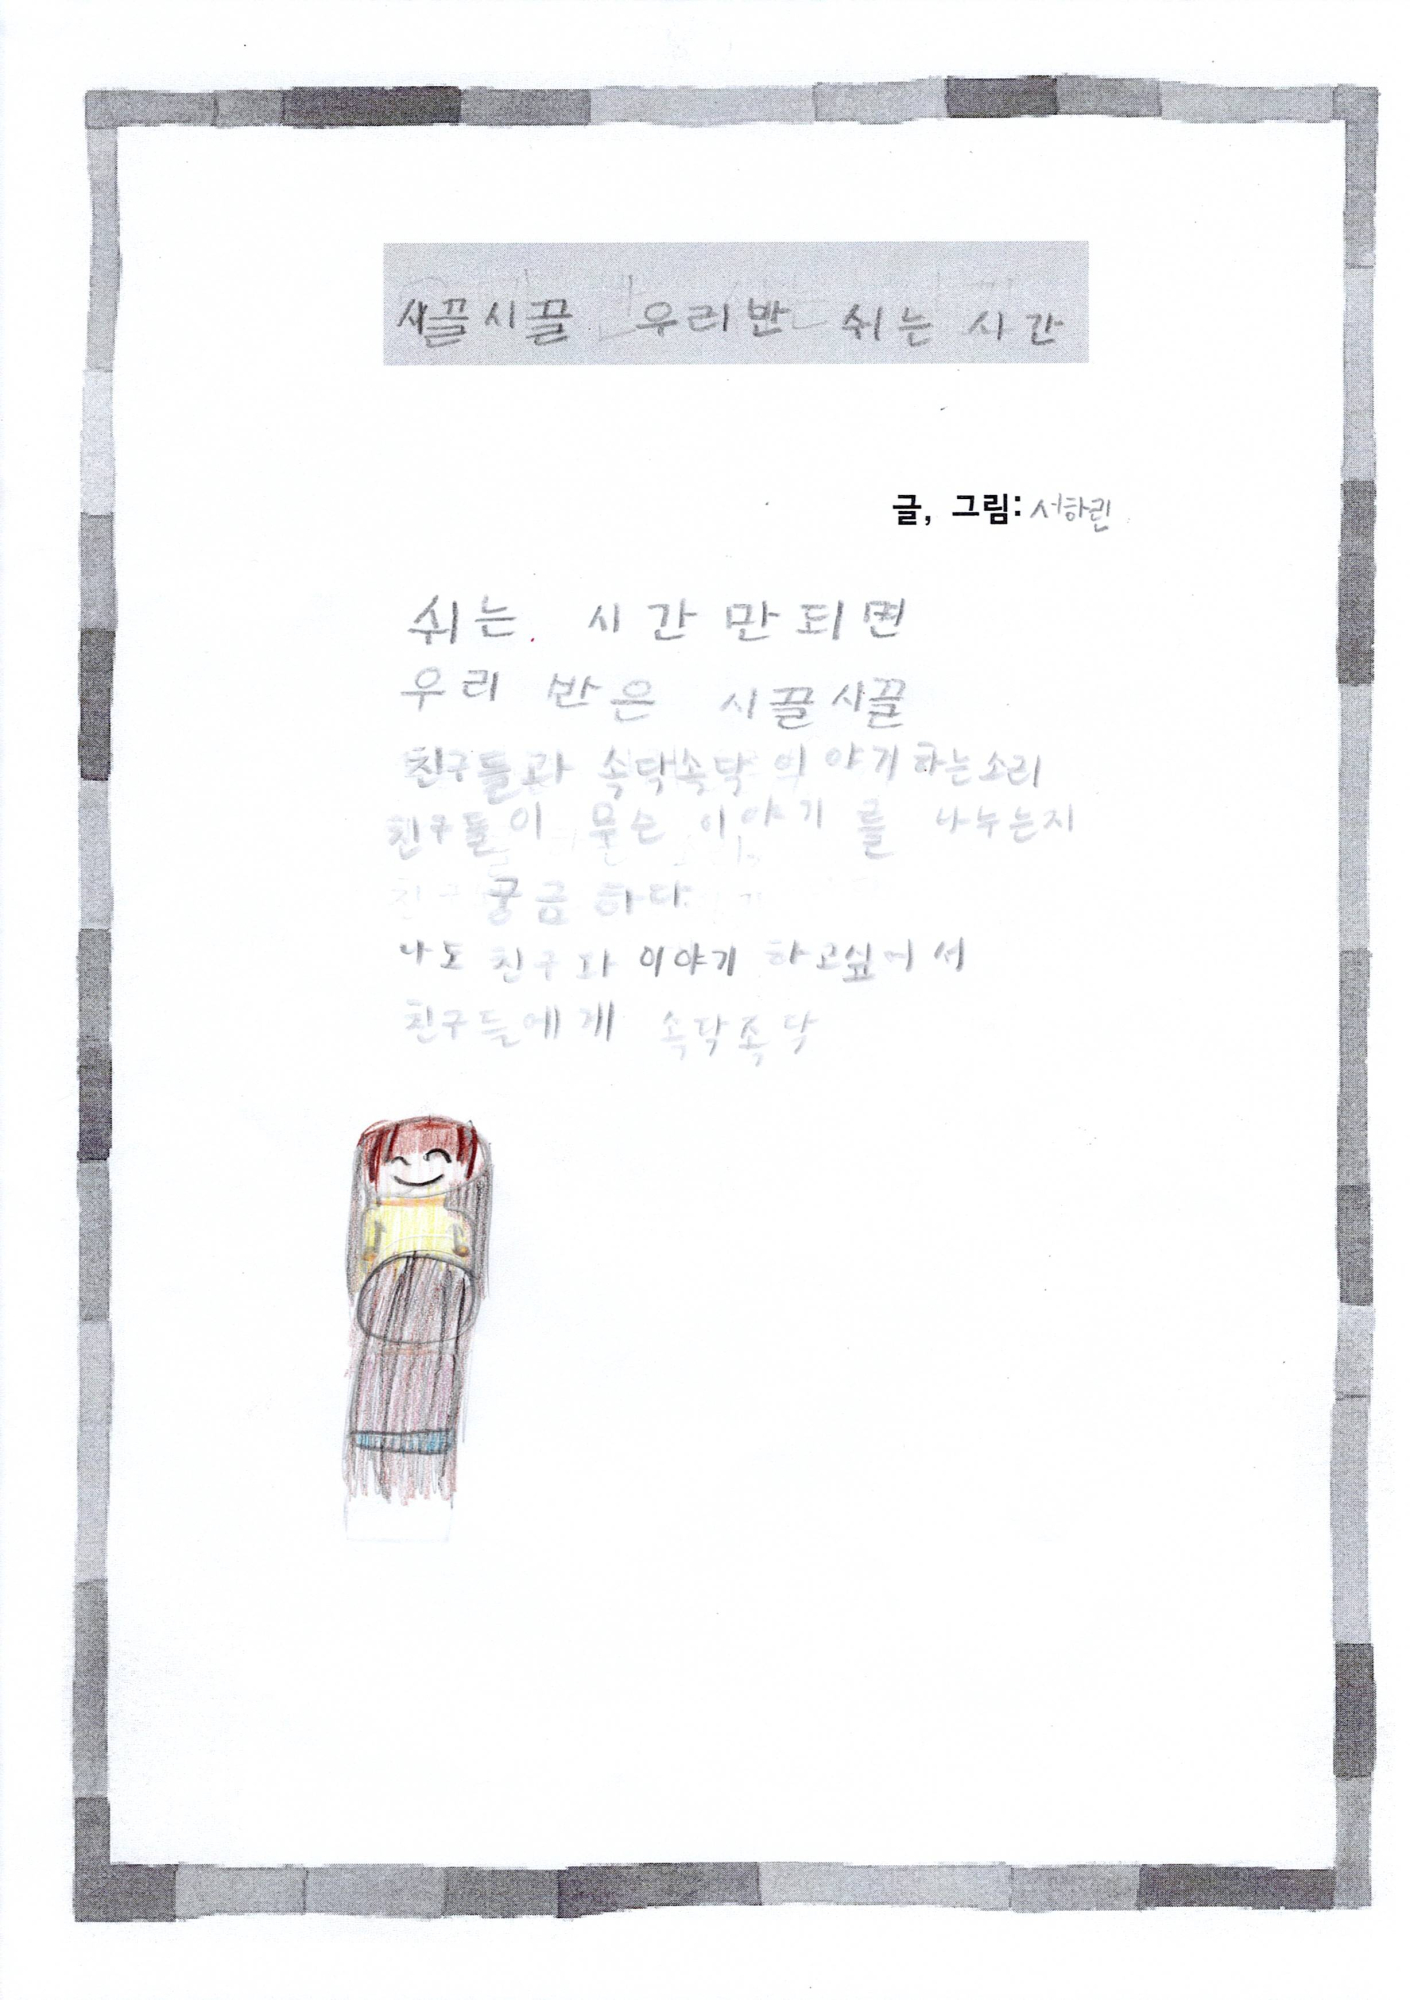 시끌시끌 우리반 쉬는 시간
글, 그림: 서하린
쉬는 시간만되면
우리 반은 시끌시끌
친구들과 속닥속닥 이야기하는소리
친구들이 무슨 이야기를 나누는지
궁금하다
나도 친구와 이야기 하고싶어서
친구들에게 속닥속닥